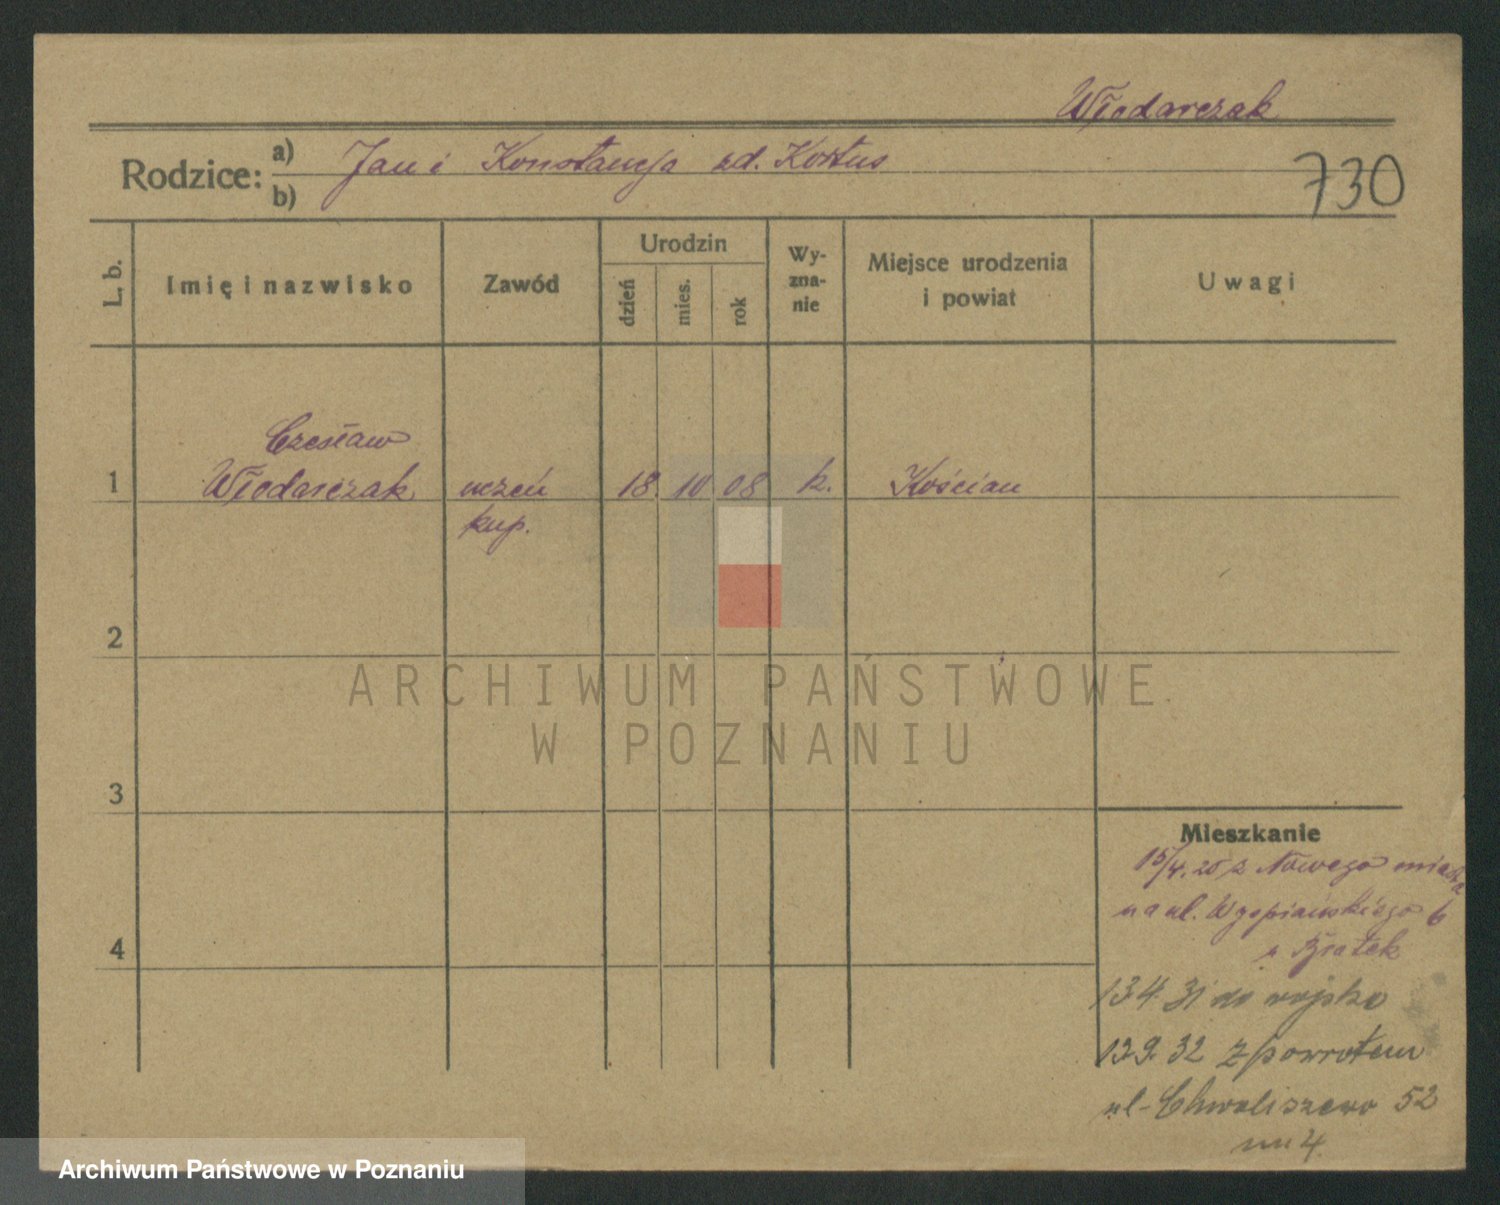 Włodarczak
Rodzice: a) Jan i Konstancja zd. Kortus
b)
730
L. b.
Imię i nazwisko
Zawód
Urodzin
dzień
mies.
rok
Wy-
zna-
nie
Miejsce urodzenia
i powiat
Uwagi
Czesław
1 Włodarczak uczeń 18. 10 08 k. Kościan
kup.
2
ARCHIWUM PAŃSTWOWE
W POZNANIU
3
Mieszkanie
15/4. 25 z Nowego miasta
na ul. Wyspiańskiego 6
u Bratek
4
13 4. 31 do wojska
13 9. 32 z powrotem
ul - Chwaliszewo 52
m 4.
Archiwum Państwowe w Poznaniu